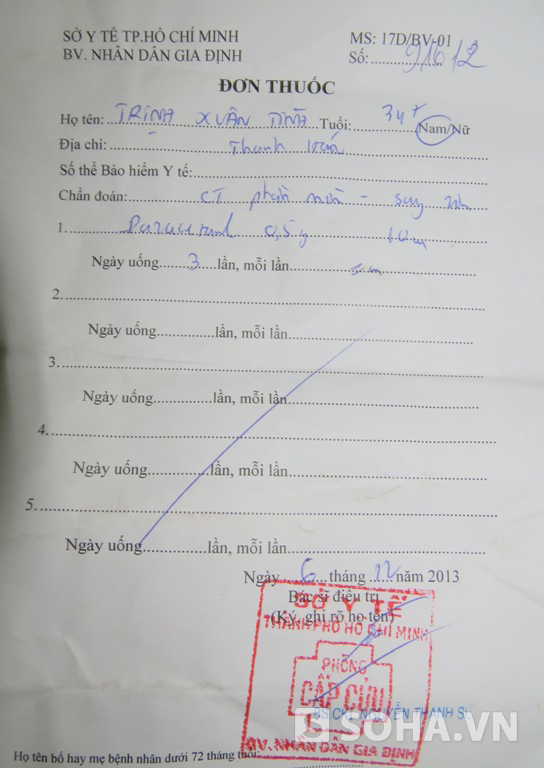 SỞ Y TẾ TP.HỒ CHÍ MINH
BV. NHÂN DÂN GIA ĐỊNH
MS: 17D/BV-01
Số:..................
ĐƠN THUỐC
Họ tên: TRỊNH XUÂN TÌNH Tuổi: 34t Nam/Nữ
Địa chỉ:
Số thẻ Bảo hiểm Y tế:
Chẩn đoán: CT phần mềm -
1. Paracetamol 0,5g
Ngày uống...3...lần, mỗi lần
2.
Ngày uống............lần, mỗi lần
3.
Ngày uống............lần, mỗi lần
4.
Ngày uống............lần, mỗi lần
5.
Ngày uống............lần, mỗi lần
Ngày 6 tháng 12 năm 2013
Bác sĩ điều trị
(Ký, ghi rõ họ tên)
SỞ Y TẾ
THÀNH PHỐ HỒ CHÍ MINH
PHÒNG
CẤP CỨU
NGUYỄN THANH
BV. NHÂN DÂN GIA ĐỊNH
SOHA.VN
Họ tên bố hay mẹ bệnh nhân dưới 72 tháng tuổi: